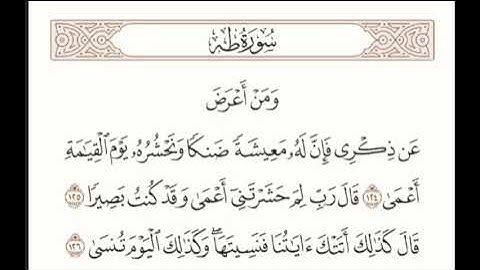 سُورَةُ طه
وَمَنْ أَعْرَضَ
عَن ذِكْرِى فَإِنَّ لَهُۥ مَعِيشَةً ضَنكًا وَنَحْشُرُهُۥ يَوْمَ ٱلْقِيَٰمَةِ
أَعْمَىٰ ١٢٤ قَالَ رَبِّ لِمَ حَشَرْتَنِىٓ أَعْمَىٰ وَقَدْ كُنتُ بَصِيرًا ١٢٥
قَالَ كَذَٰلِكَ أَتَتْكَ ءَايَٰتُنَا فَنَسِيتَهَا ۖ وَكَذَٰلِكَ ٱلْيَوْمَ تُنسَىٰ ١٢٦